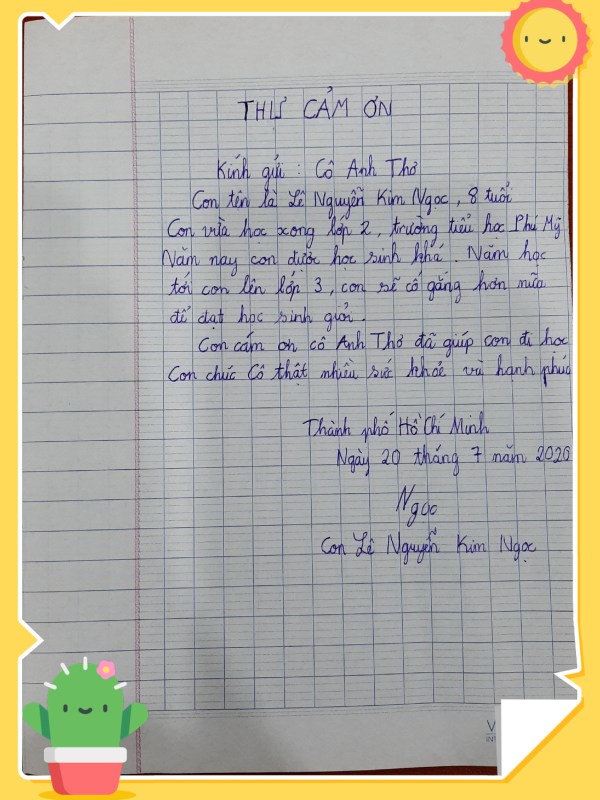 THƯ CẢM ƠN
Kính gửi : Cô Anh Thơ
Con tên là Lê Nguyễn Kim Ngọc, 8 tuổi
Con vừa học xong lớp 2, trường tiểu học Phú Mỹ
Năm nay con được học sinh khá. Năm học
tới con lên lớp 3, con sẽ cố gắng hơn nữa
để đạt học sinh giỏi.
Con cảm ơn cô Anh Thơ đã giúp con đi học
Con chúc Cô thật nhiều sức khoẻ và hạnh phúc
Thành phố Hồ Chí Minh
Ngày 20 tháng 7 năm 2020
Ngọc
Con Lê Nguyễn Kim Ngọc